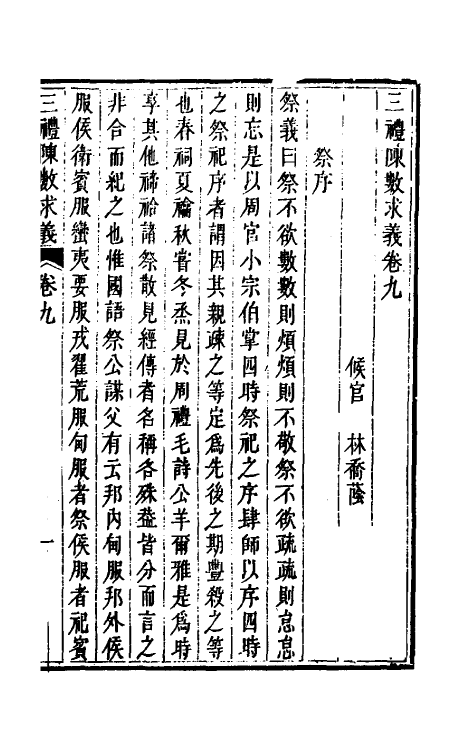 三禮陳數求義卷九
候官　林喬蔭
祭序
祭義曰祭不欲數數則煩煩則不敬祭不欲疏疏則怠怠
則忘是以周官小宗伯掌四時祭祀之序肆師以序四時
之祭祀序者謂因其親疎之等定爲先後之期豐殺之等
也春祠夏禴秋嘗冬烝見於周禮毛詩公羊爾雅是爲時
享其他禘祫諸祭散見經傳者名稱各殊葢皆分而言之
非合而紀之也惟國語祭公謀父有云邦內甸服邦外侯
服侯衛賓服蠻夷要服戎翟荒服甸服者祭侯服者祀賓
三禮陳數求義　卷九　一